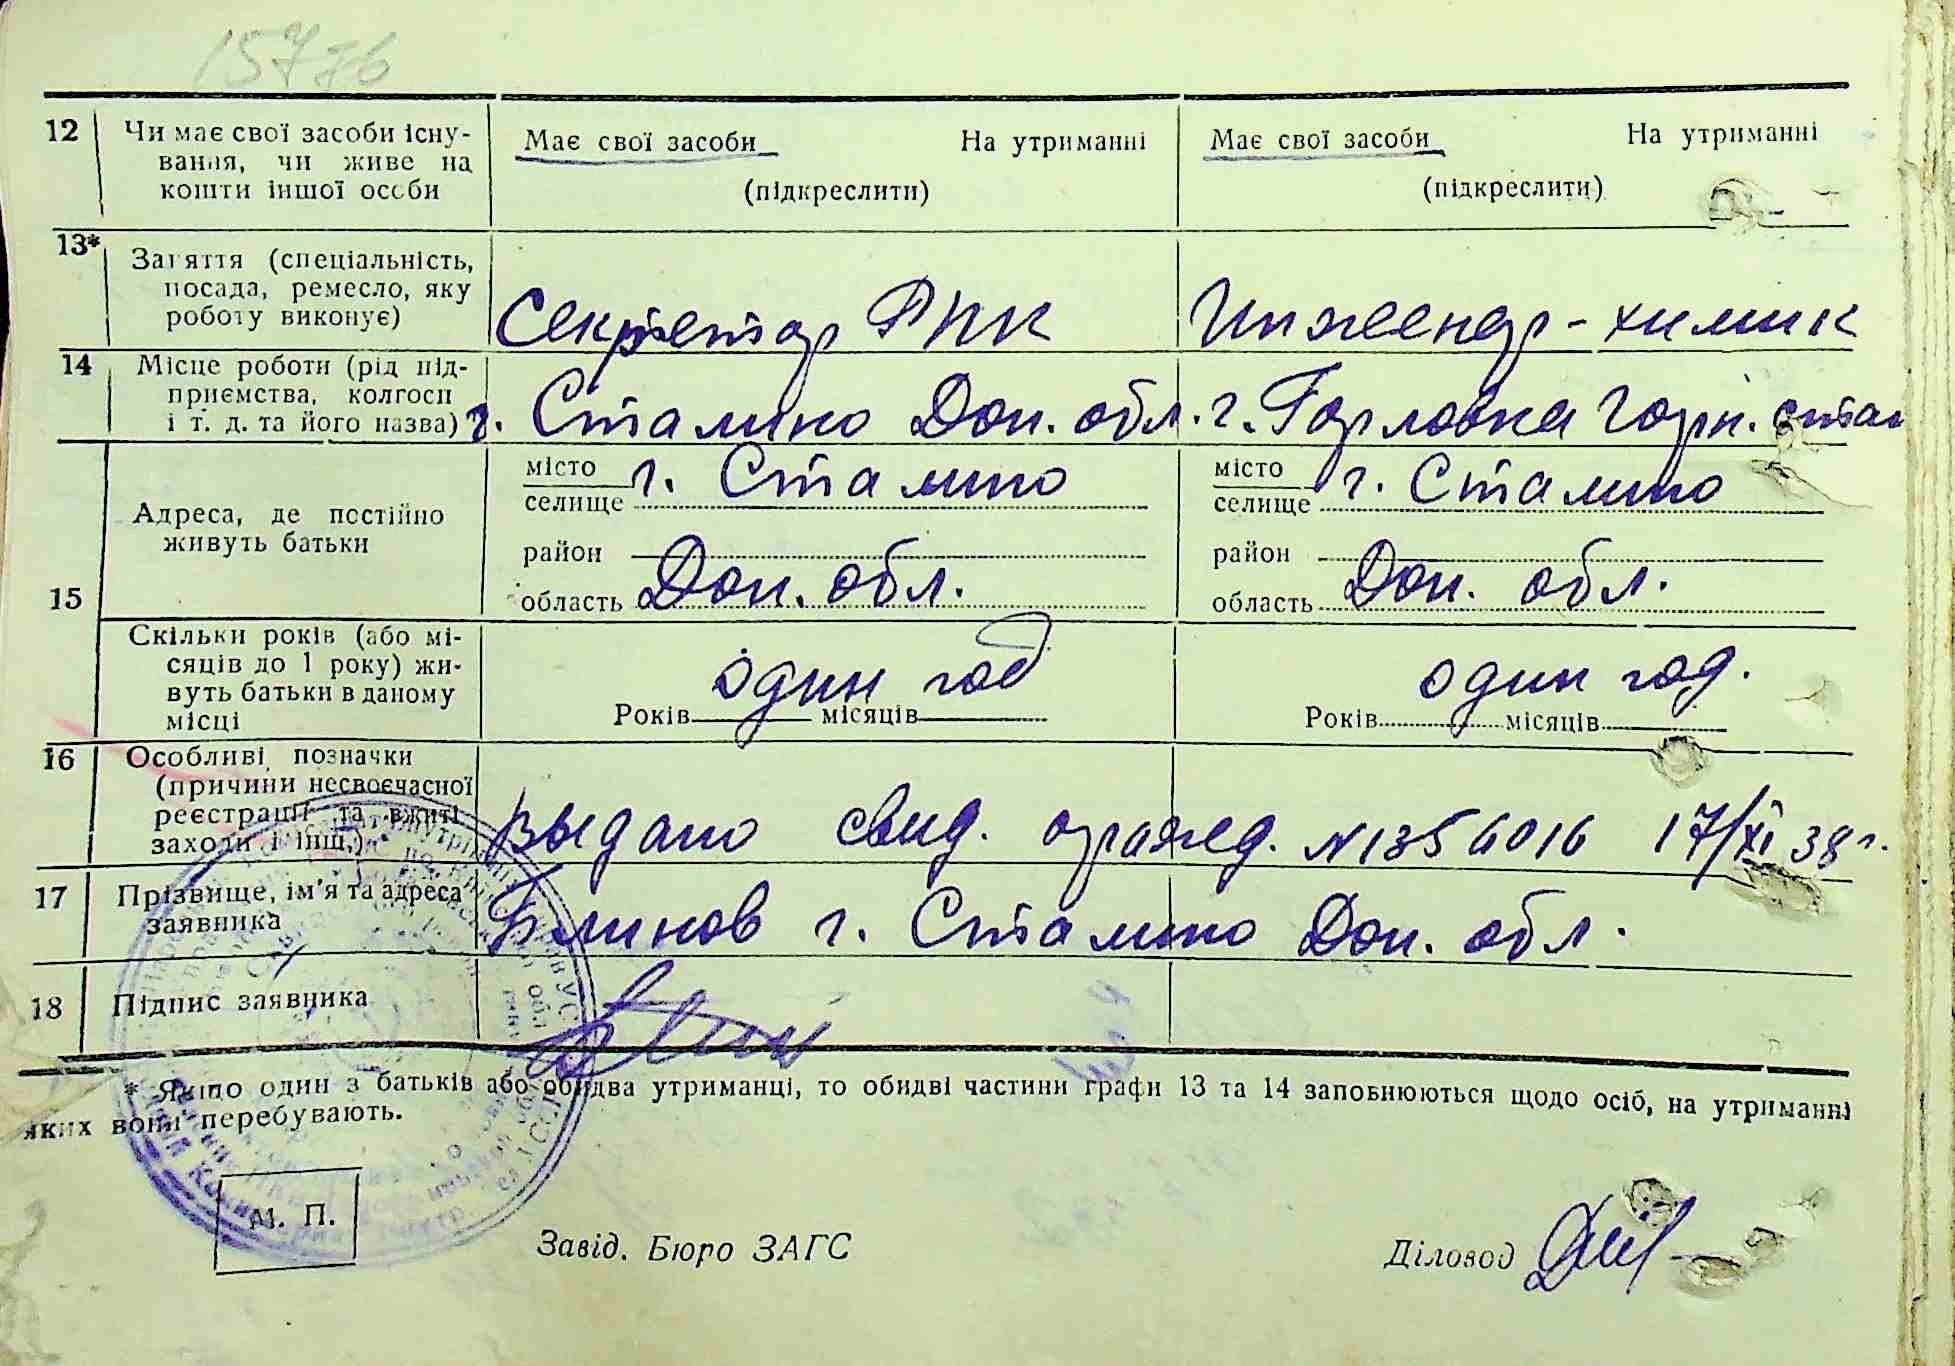 15776
12 Чи має свої засоби існу-
вання, чи живе на
кошти іншої особи
Має свої засоби На утриманні
(підкреслити)
Має свої засоби На утриманні
(підкреслити)
13* Заняття (спеціальність,
посада, ремесло, яку
роботу виконує)
Секретар РПК
Инженер-химик
14 Місце роботи (рід під-
приємства, колгосп
і т. д. та його назва)
г. Сталино Дон. обл.
г. Горловка Горн.
15 Адреса, де постійно
живуть батьки
місто
селище г. Сталино
район
область Дон. обл.
місто
селище г. Сталино
район
область Дон. обл.
Скільки років (або мі-
сяців до 1 року) жи-
вуть батьки в даному
місці
один год
Років місяців
один год.
Років місяців
16 Особливі позначки
(причини несвоєчасної
реєстрації та вжиті
заходи і інш.)
выдано свид. о ражд. N 17/XI 38 г.
17 Прізвище, ім'я та адреса
заявника
Блинов г. Сталино Дон. обл.
18 Підпис заявника
* Якщо один з батьків або обидва утриманці, то обидві частини графи 13 та 14 заповнюються щодо осіб, на утриманні
яких вони перебувають.
М. П.
Завід. Бюро ЗАГС
Діловод